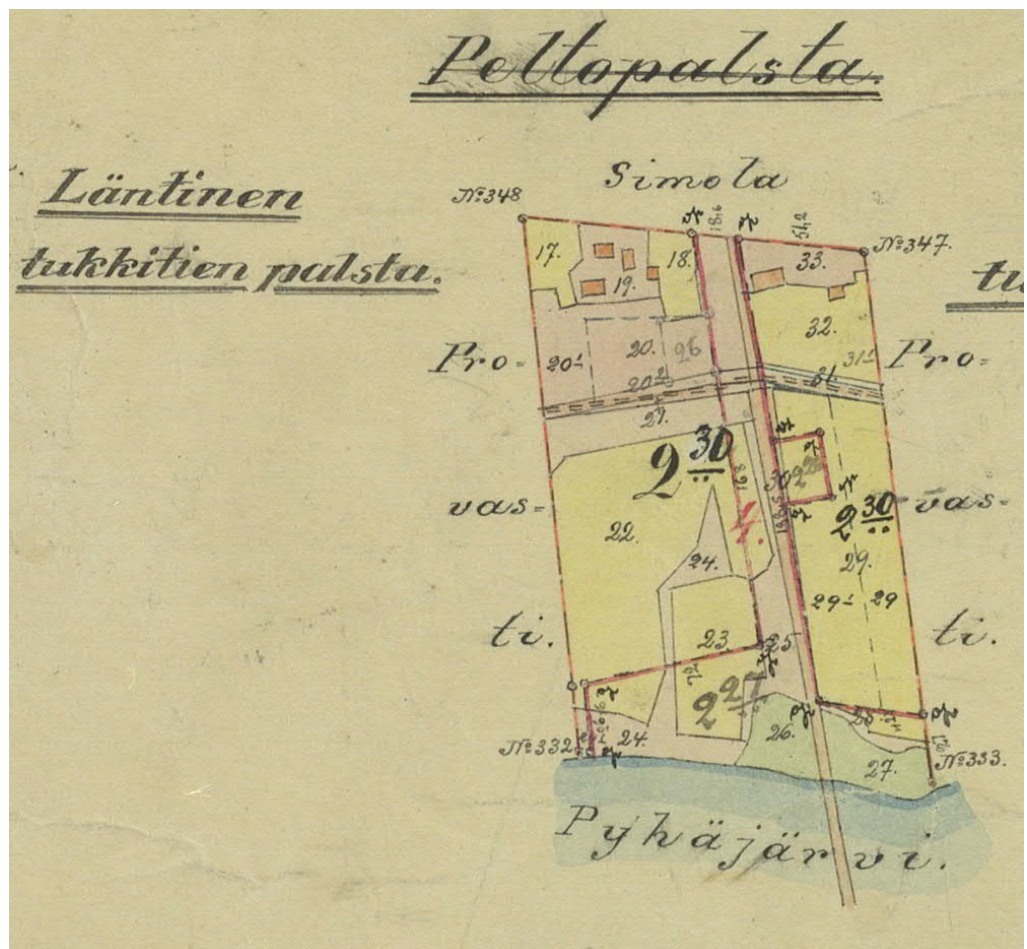 Peltopalsta.
Läntinen
tukkitien palsta.
Simola
№348
18,6
54,2
№347.
17.
18.
19.
33.
32.
Pro-
20¹
20.
26
20²
31¹
31.
Pro-
21.
2³⁰
16,8
30
2²⁸
vas-
22.
24.
1.
2³⁰
vas-
29.
29¹
29
ti.
23.
25
ti.
2²⁷
26.
28
27.
24.
№332
№333.
Pyhäjärvi.